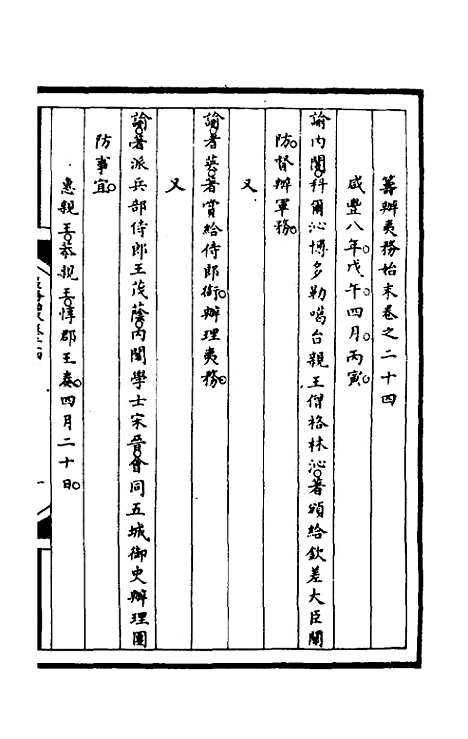 籌辦夷務始末卷之二十四
咸豐八年。戊午。四月。丙寅。
諭內閣。科爾沁博多勒噶台親王僧格林沁。著頒給欽差大臣關
防。督辦軍務。
又
諭。耆英著賞給侍郎銜。辦理夷務。
又
諭。著派兵部侍郎王茂蔭。內閣學士宋晉。會同五城御史辦理團
防事宜。
惠親王。恭親王。惇郡王奏。四月二十日。